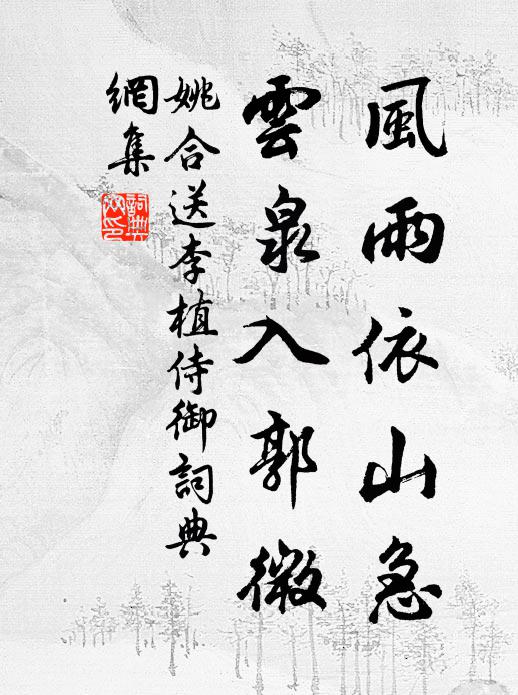 風雨依山急
雲泉入郭微
姚合送李植侍御詞典
網集
詞典
网印